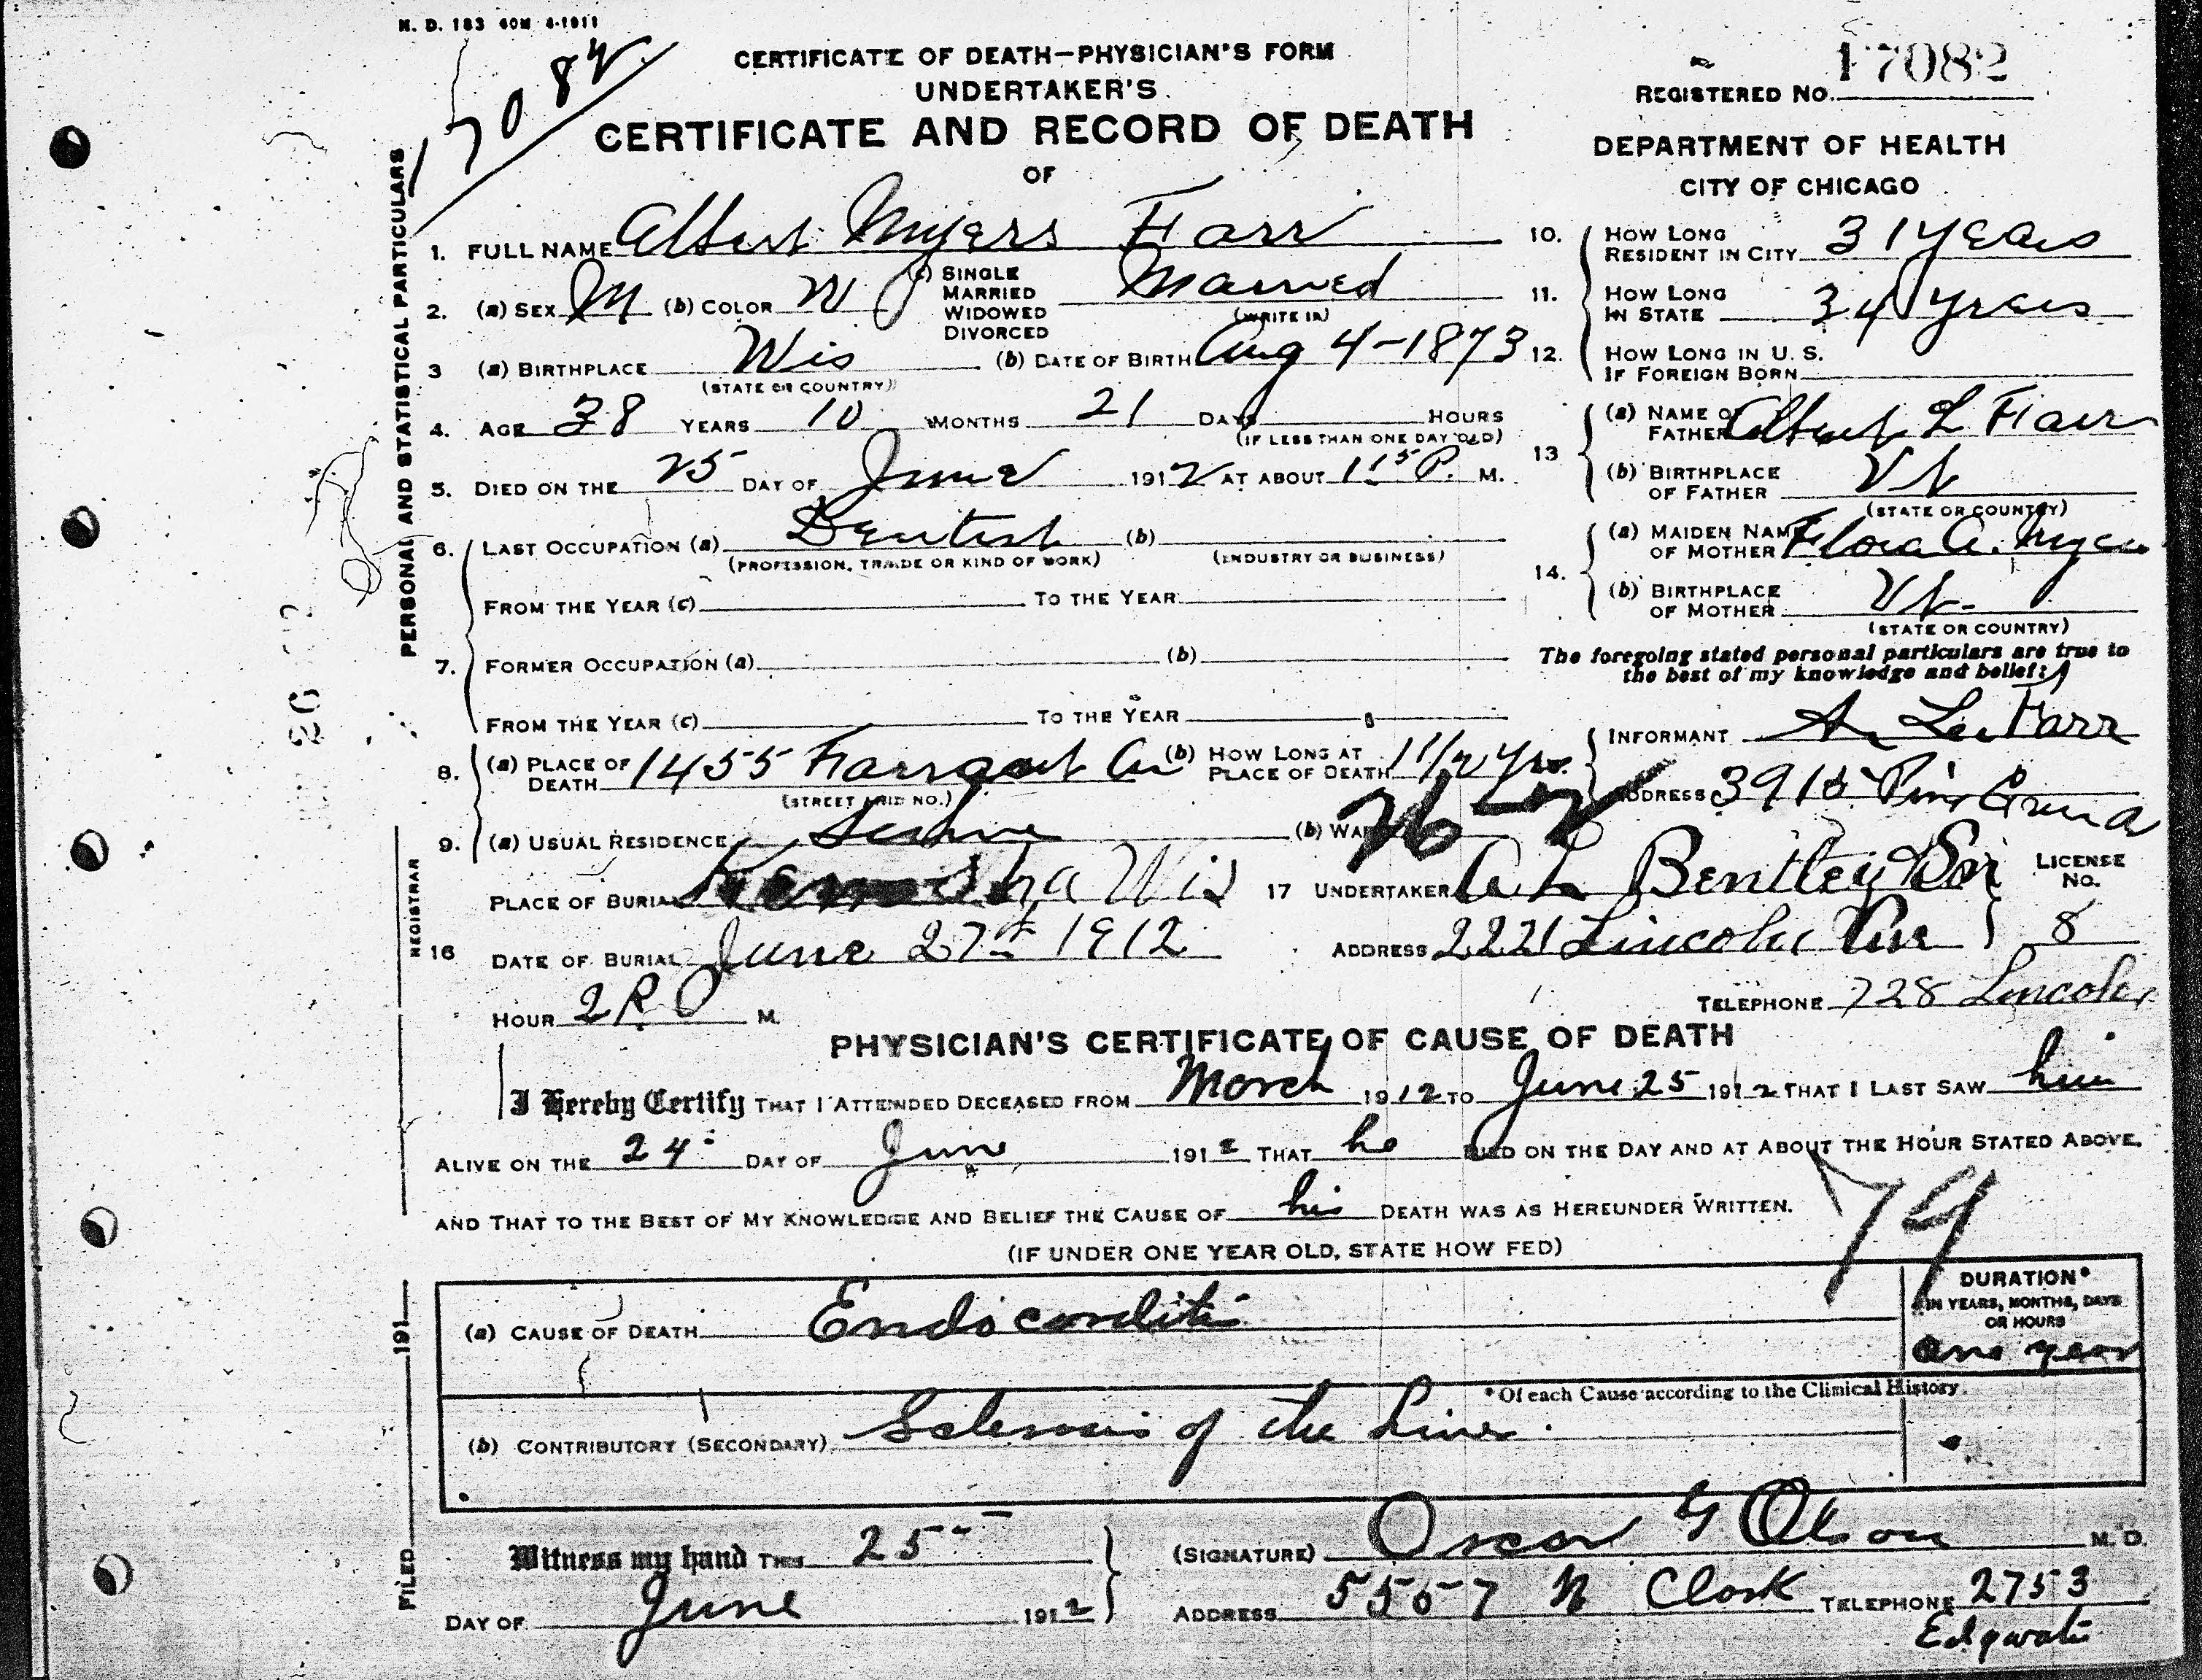 H. D. 183 60M 4-1911
17082
CERTIFICATE OF DEATH—PHYSICIAN'S FORM
UNDERTAKER'S
CERTIFICATE AND RECORD OF DEATH
OF
REGISTERED NO. 17082
DEPARTMENT OF HEALTH
CITY OF CHICAGO
PERSONAL AND STATISTICAL PARTICULARS
1. FULL NAME Albert Myers Farr
2. (a) SEX M (b) COLOR W (c) SINGLE MARRIED WIDOWED DIVORCED Married
(WRITE IN)
3 (a) BIRTHPLACE Wis (b) DATE OF BIRTH Aug 4-1873
(STATE OR COUNTRY)
4. AGE 38 YEARS 10 MONTHS 21 DAYS HOURS
(IF LESS THAN ONE DAY OLD)
5. DIED ON THE 25 DAY OF June 1912 AT ABOUT 1 15 P. M.
6. LAST OCCUPATION (a) Dentist (b)
(PROFESSION, TRADE OR KIND OF WORK) (INDUSTRY OR BUSINESS)
FROM THE YEAR (c) TO THE YEAR
7. FORMER OCCUPATION (a) (b)
FROM THE YEAR (c) TO THE YEAR
8. (a) PLACE OF DEATH 1455 Farragut Av (b) HOW LONG AT PLACE OF DEATH 1 1/2 Yrs.
(STREET AND NO.)
9. (a) USUAL RESIDENCE Same (b) WARD 26
10. HOW LONG RESIDENT IN CITY 31 years
11. HOW LONG IN STATE 34 years
12. HOW LONG IN U. S. IF FOREIGN BORN
13 (a) NAME OF FATHER Albert L Farr
(b) BIRTHPLACE OF FATHER Vt
(STATE OR COUNTRY)
14. (a) MAIDEN NAME OF MOTHER Flora A. Myers
(b) BIRTHPLACE OF MOTHER Vt.
(STATE OR COUNTRY)
The foregoing stated personal particulars are true to
the best of my knowledge and belief:
INFORMANT A. L. Farr
ADDRESS 3915 Pine Grove
REGISTRAR
16 PLACE OF BURIAL Kenosha Wis
DATE OF BURIAL June 27th 1912
HOUR 2 P. M.
17 UNDERTAKER A L Bentley & Son
LICENSE NO. 8
ADDRESS 2221 Lincoln Ave
TELEPHONE 728 Lincoln
PHYSICIAN'S CERTIFICATE OF CAUSE OF DEATH
I Hereby Certify THAT I ATTENDED DECEASED FROM March 1912 TO June 25 1912 THAT I LAST SAW him
ALIVE ON THE 24 DAY OF June 1912 THAT he DIED ON THE DAY AND AT ABOUT THE HOUR STATED ABOVE,
AND THAT TO THE BEST OF MY KNOWLEDGE AND BELIEF THE CAUSE OF his DEATH WAS AS HEREUNDER WRITTEN.
79
(IF UNDER ONE YEAR OLD, STATE HOW FED)
(a) CAUSE OF DEATH Endocarditis
DURATION*
IN YEARS, MONTHS, DAYS
OR HOURS
One year
*Of each Cause according to the Clinical History.
(b) CONTRIBUTORY (SECONDARY) Sclerosis of the Liver.
FILED 191
Witness my hand THIS 25
DAY OF June 1912
(SIGNATURE) Oscar G Olson M. D.
ADDRESS 5557 N Clark TELEPHONE 2753
Edgwater